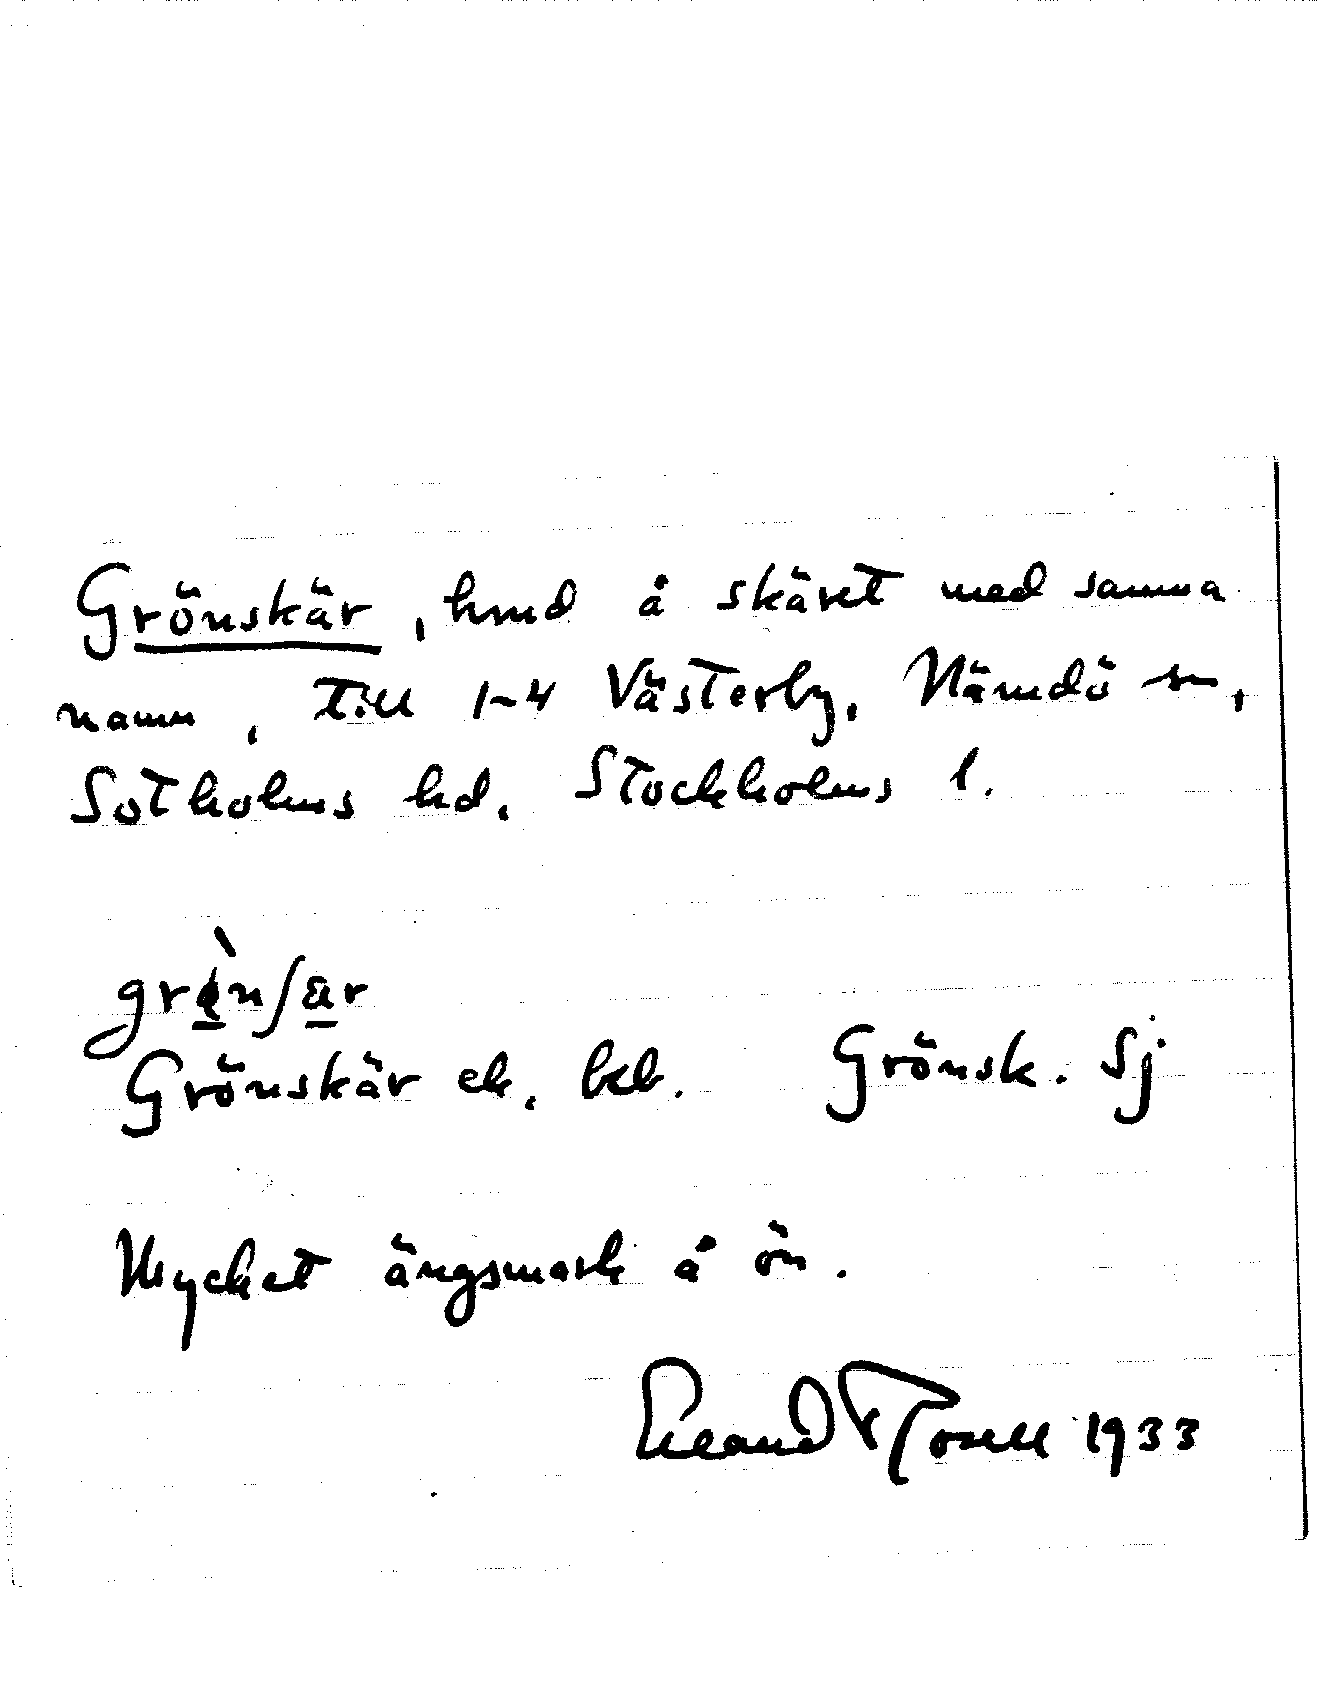 Grönskär, hmd å skäret med samma
namn, till 1-4 Västerby, Nämdö sn,
Sotholms hd. Stockholms l.
grø̀nʃär
Grönskär ek. bebGrönsk. Sj
Mycket ängsmark å ön.
Erland Rosell 1933